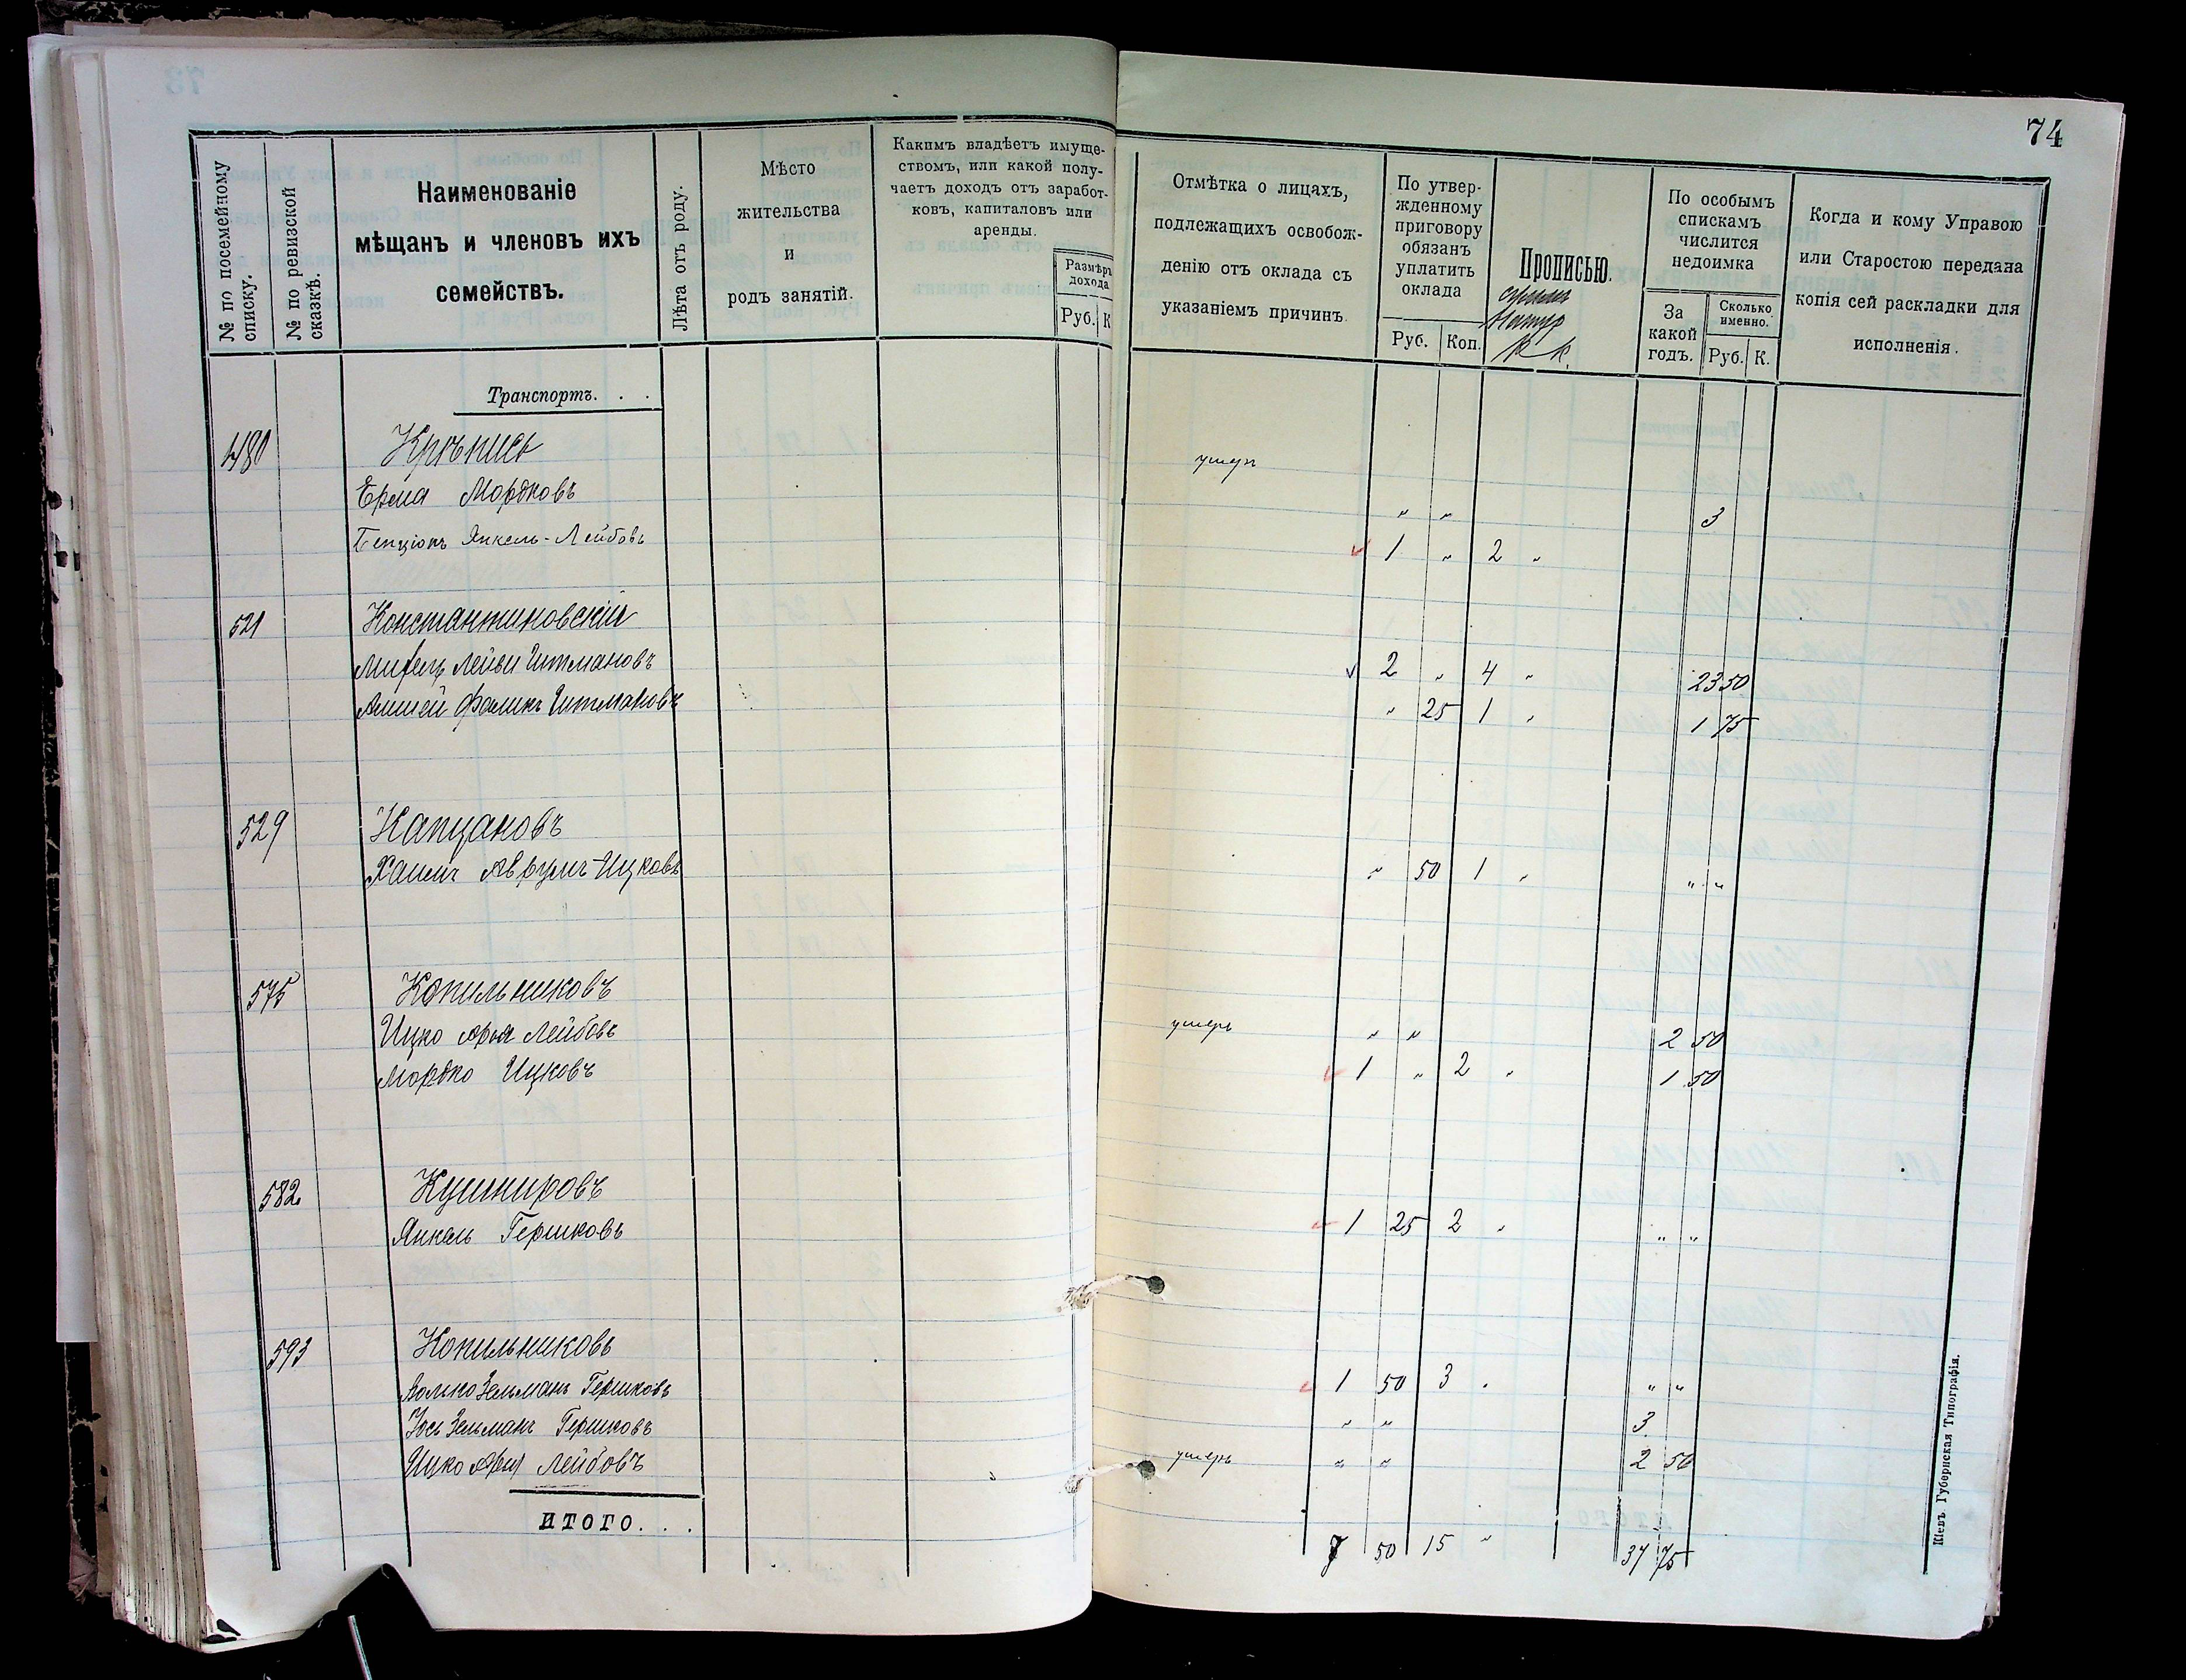 74
№ по посемейному списку.
№ по ревизской сказкѣ.
Наименованіе
мѣщанъ и членовъ ихъ
семействъ.
Лѣта отъ роду.
Мѣсто
жительства
и
родъ занятій.
Какимъ владѣетъ имуще-
ствомъ, или какой полу-
чаетъ доходъ отъ заработ-
ковъ, капиталовъ или
аренды.
Размѣръ
дохода
Руб. К
Отмѣтка о лицахъ,
подлежащихъ освобож-
денію отъ оклада съ
указаніемъ причинъ
По утвер-
жденному
приговору
обязанъ
уплатить
оклада
Руб. Коп.
Прописью.
По особымъ
спискамъ
числится
недоимка
За
какой
годъ.
Сколько
именно.
Руб. К.
Когда и кому Управою
или Старостою передана
копія сей раскладки для
исполненія.
Транспортъ. . .
480 Крѣпись умеръ
Ерма Мордковъ " " 3
Бенціонъ Янкель-Лейбовъ 1 " 2 "
521 Константиновскій
Лейви Читмановъ 2 " 4 " 23 50
Фалик Читмановъ " 25 1 " 1 75
529 Капцановъ
Хаимъ Аврумъ-Ицковъ " 50 1 " " "
575 Копильниковъ
Ицко Арья Лейбовъ умеръ " " 2 50
Мордко Ицковъ 1 " 2 " 1 50
582 Кушнировъ
Янкель Гершковъ 1 25 2 " " "
593 Копильниковъ
Волько Зельманъ Гершковъ 1 50 3 " " "
Іось Зельманъ Гершковъ " " 3
Ицко Арья Лейбовъ умеръ " " 2 50
ИТОГО. . . 7 50 15 " 37 75
Кіевъ. Губернская Типографія.